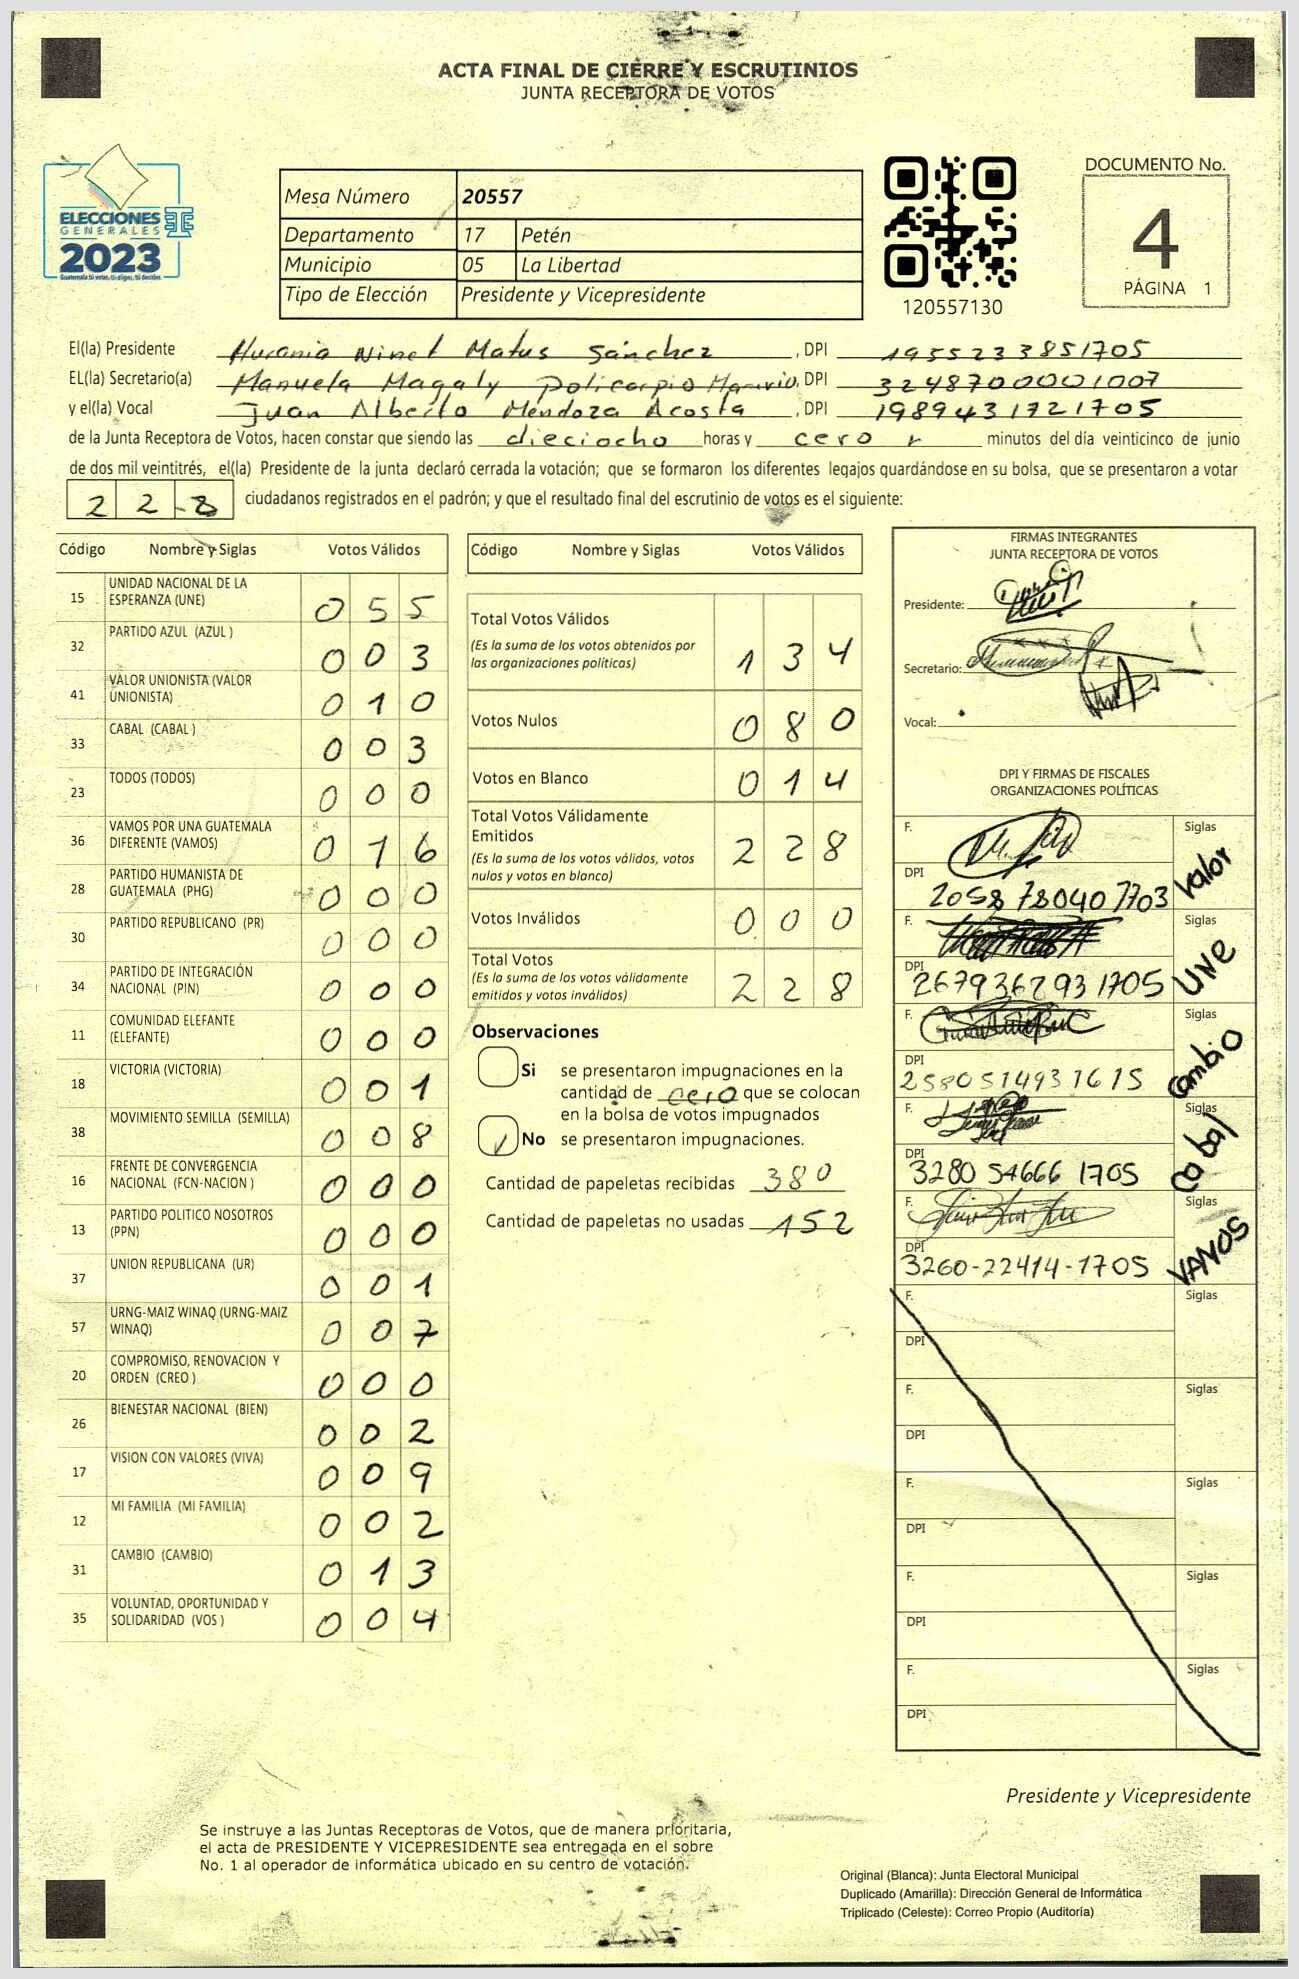 ACTA FINAL DE CIERRE Y ESCRUTINIOS
JUNTA RECEPTORA DE VOTOS
ELECCIONES
GENERALES
2023
Mesa Número 20557
Departamento 17 Petén
Municipio 05 La Libertad
Tipo de Elección Presidente y Vicepresidente
120557130
DOCUMENTO No.
4
PÁGINA 1
El(la) Presidente Hurania Ninet Matus Sánchez, DPI 1955233851705
EL(la) Secretario(a) Manuela Magaly Policarpio, DPI 3248700001007
y el(la) Vocal Juan Alberto Mendoza Acosta, DPI 1989431721705
de la Junta Receptora de Votos, hacen constar que siendo las dieciocho horas y cero minutos del día veinticinco de junio
de dos mil veintitrés, el(la) Presidente de la junta declaró cerrada la votación; que se formaron los diferentes legajos guardándose en su bolsa, que se presentaron a votar
228 ciudadanos registrados en el padrón; y que el resultado final del escrutinio de votos es el siguiente:
Código Nombre y Siglas Votos Válidos
15 UNIDAD NACIONAL DE LA ESPERANZA (UNE) 055
32 PARTIDO AZUL (AZUL ) 003
41 VALOR UNIONISTA (VALOR UNIONISTA) 010
33 CABAL (CABAL ) 003
23 TODOS (TODOS) 000
36 VAMOS POR UNA GUATEMALA DIFERENTE (VAMOS) 016
28 PARTIDO HUMANISTA DE GUATEMALA (PHG) 000
30 PARTIDO REPUBLICANO (PR) 000
34 PARTIDO DE INTEGRACIÓN NACIONAL (PIN) 000
11 COMUNIDAD ELEFANTE (ELEFANTE) 000
18 VICTORIA (VICTORIA) 001
38 MOVIMIENTO SEMILLA (SEMILLA) 008
16 FRENTE DE CONVERGENCIA NACIONAL (FCN-NACION ) 000
13 PARTIDO POLITICO NOSOTROS (PPN) 000
37 UNION REPUBLICANA (UR) 001
57 URNG-MAIZ WINAQ (URNG-MAIZ WINAQ) 007
20 COMPROMISO, RENOVACION Y ORDEN (CREO ) 000
26 BIENESTAR NACIONAL (BIEN) 002
17 VISION CON VALORES (VIVA) 009
12 MI FAMILIA (MI FAMILIA) 002
31 CAMBIO (CAMBIO) 013
35 VOLUNTAD, OPORTUNIDAD Y SOLIDARIDAD (VOS ) 004
Código Nombre y Siglas Votos Válidos
Total Votos Válidos 134
(Es la suma de los votos obtenidos por
las organizaciones políticas)
Votos Nulos 080
Votos en Blanco 014
Total Votos Válidamente
Emitidos 228
(Es la suma de los votos válidos, votos
nulos y votos en blanco)
Votos Inválidos 000
Total Votos 228
(Es la suma de los votos válidamente
emitidos y votos inválidos)
Observaciones
Si se presentaron impugnaciones en la
cantidad de cero que se colocan
en la bolsa de votos impugnados
No se presentaron impugnaciones.
Cantidad de papeletas recibidas 380
Cantidad de papeletas no usadas 152
FIRMAS INTEGRANTES
JUNTA RECEPTORA DE VOTOS
Presidente:
Secretario:
Vocal:
DPI Y FIRMAS DE FISCALES
ORGANIZACIONES POLÍTICAS
F. Siglas Valor
DPI 2058 78040 7703
F. Siglas UNE
DPI 2679362931705
F. Siglas Cambio
DPI 2580514931615
F. Siglas Cabal
DPI 3280 54666 1705
F. Siglas VAMOS
DPI 3260-22414-1705
F. Siglas
DPI
F. Siglas
DPI
F. Siglas
DPI
F. Siglas
DPI
F. Siglas
DPI
Presidente y Vicepresidente
Se instruye a las Juntas Receptoras de Votos, que de manera prioritaria,
el acta de PRESIDENTE Y VICEPRESIDENTE sea entregada en el sobre
No. 1 al operador de informática ubicado en su centro de votación.
Original (Blanca): Junta Electoral Municipal
Duplicado (Amarilla): Dirección General de Informática
Triplicado (Celeste): Correo Propio (Auditoría)